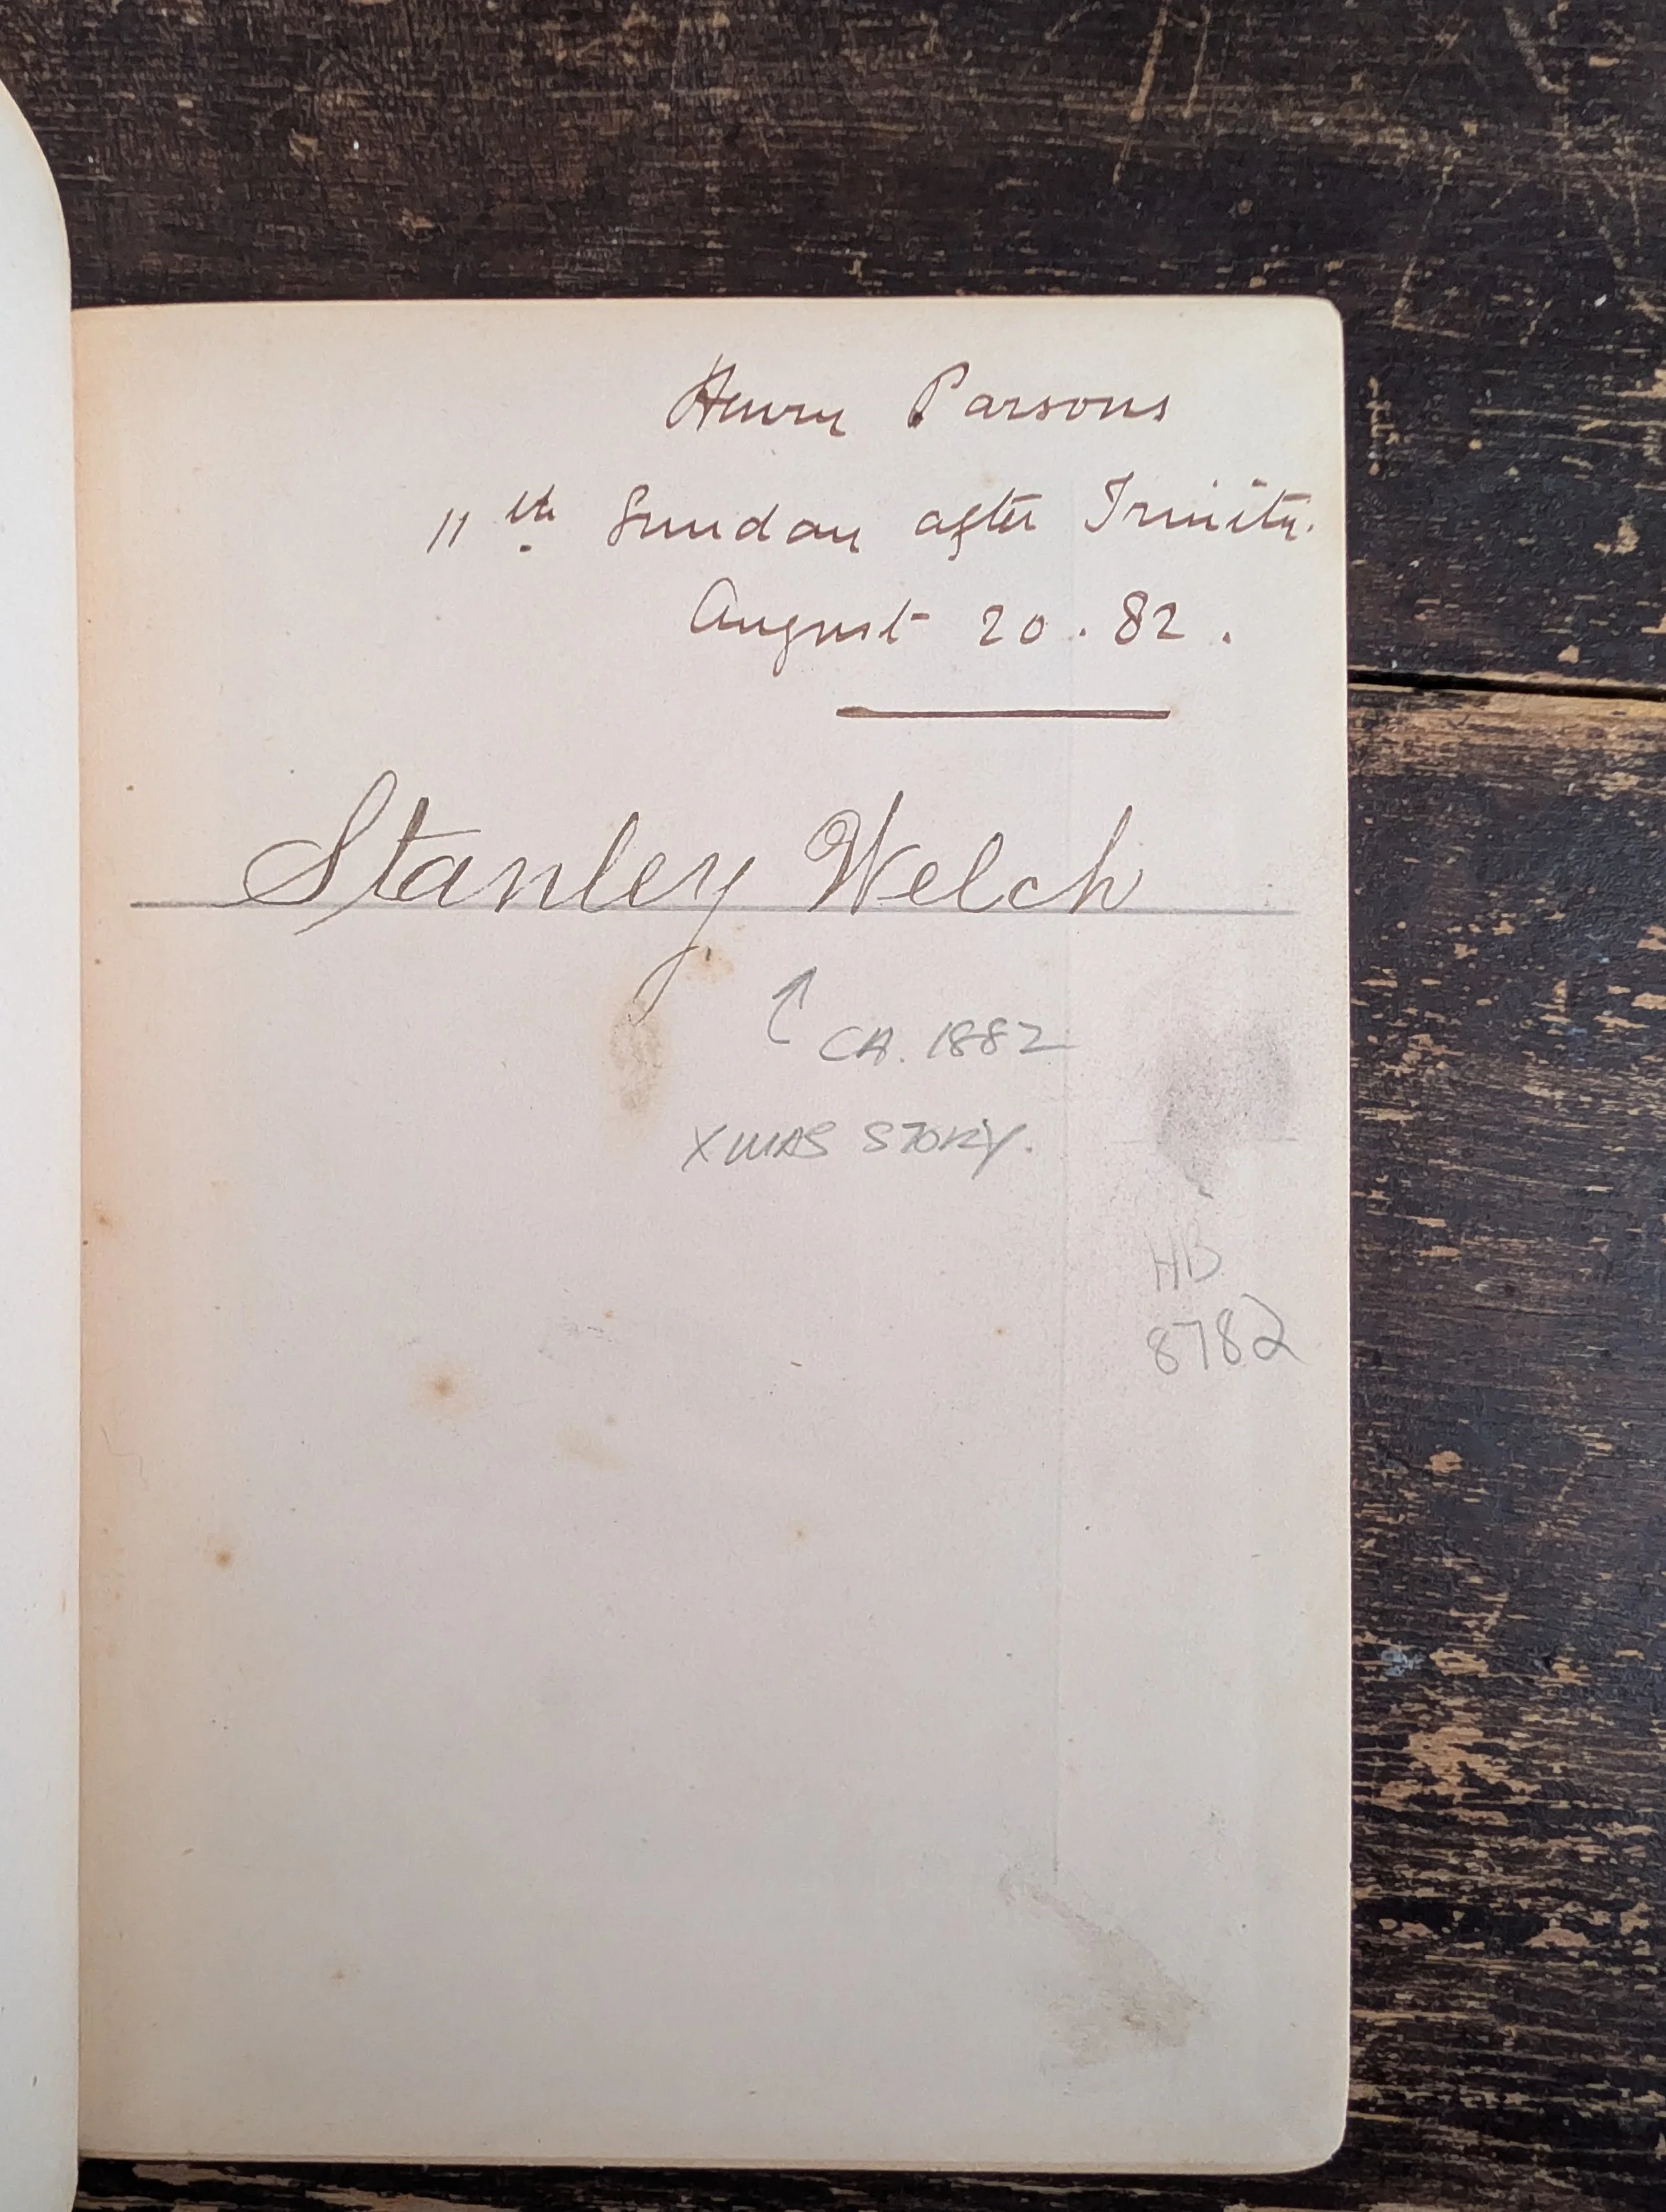 Henry Parsons
11th Sunday after Trinity.
August 20. 82.
Stanley Welch
CA. 1882
XMAS STORY.
HB
8782